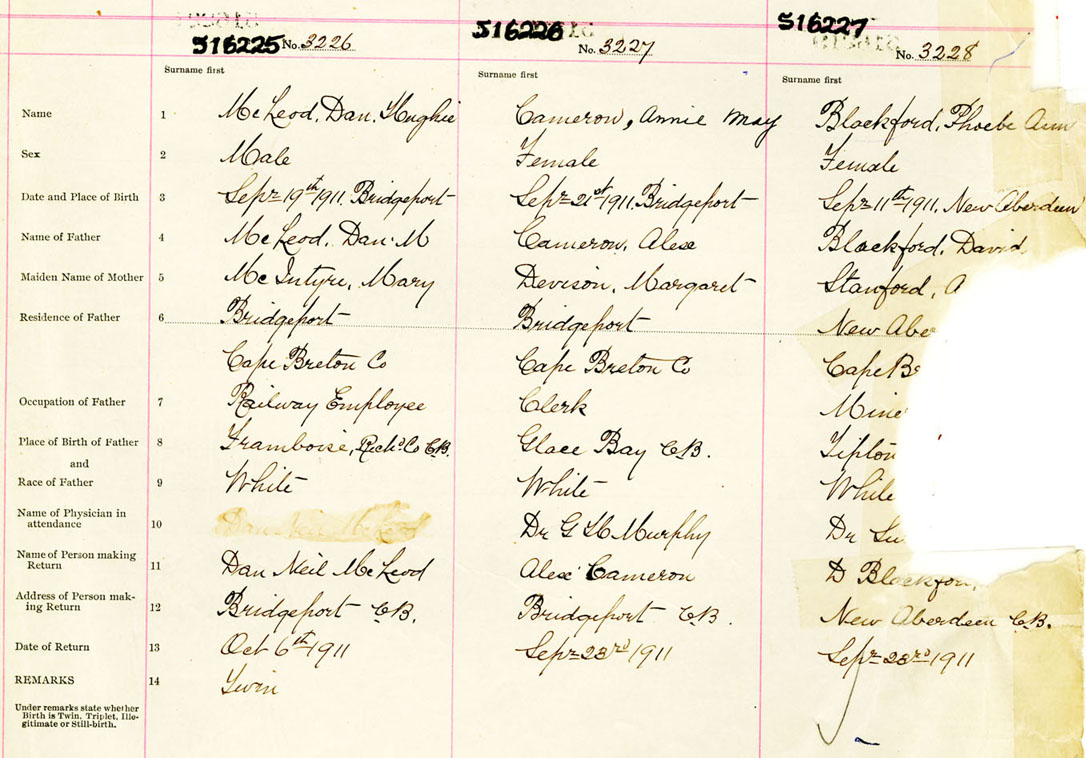 516225 No. 3226 516226 No. 3227 516227 No. 3228
Surname first Surname first Surname first
Name 1 McLeod, Dan. Hughie Cameron, Annie May Blackford, Phoebe Ann
Sex 2 Male Female Female
Date and Place of Birth 3 Sept 19th 1911, Bridgeport Sept 21st 1911, Bridgeport Sept 11th 1911, New Aberdeen
Name of Father 4 McLeod, Dan. M Cameron, Alex Blackford, David
Maiden Name of Mother 5 McIntyre, Mary Devison, Margaret Stanford, A
Residence of Father 6 Bridgeport Bridgeport New Abe
Cape Breton Co Cape Breton Co Cape B
Occupation of Father 7 Railway Employee Clerk Mine
Place of Birth of Father 8 Framboise, Richd. Co C.B. Glace Bay C.B. Tipton
and
Race of Father 9 White White White
Name of Physician in
attendance 10 Dan Neil McLeod Dr G H Murphy Dr
Name of Person making
Return 11 Dan Neil McLeod Alex Cameron D Blackfor
Address of Person mak-
ing Return 12 Bridgeport C.B. Bridgeport C.B. New Aberdeen C.B.
Date of Return 13 Oct 6th 1911 Sept 23rd 1911 Sept 23rd 1911
REMARKS 14 Twin
Under remarks state whether
Birth is Twin, Triplet, Ille-
gitimate or Still-birth.